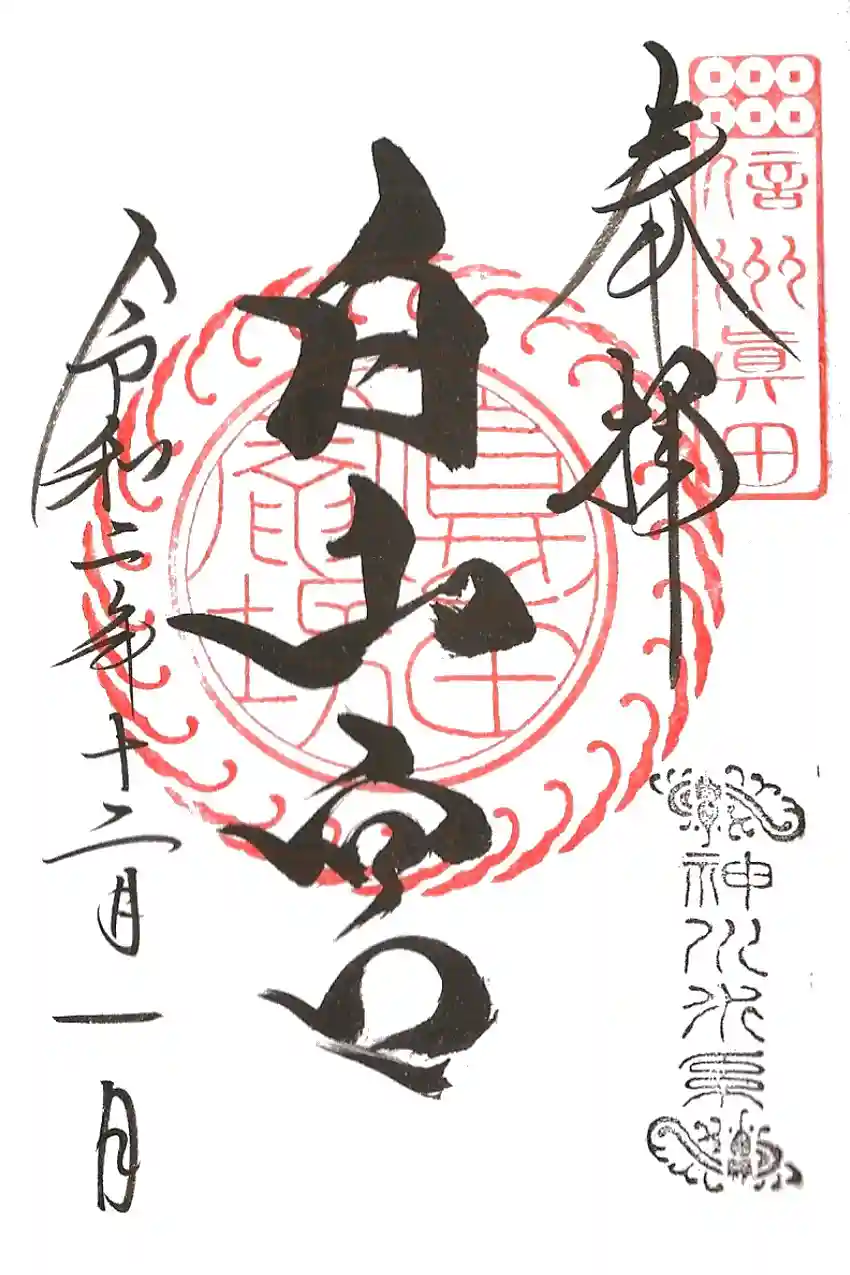 信州眞田
奉拝
白山宮
令和二年十二月一日
神川水